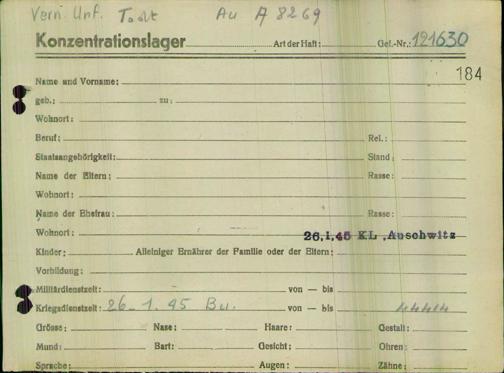 Vern. Unf. Au A 8269
Konzentrationslager Art der Haft: Gef.-Nr.: 121630
184
Name und Vorname:
geb.: zu:
Wohnort:
Beruf: Rel.:
Staatsangehörigkeit: Stand:
Name der Eltern: Rasse:
Wohnort:
Name der Ehefrau: Rasse:
Wohnort: 26.1.45 KL. Auschwitz
Kinder: Alleiniger Ernährer der Familie oder der Eltern:
Vorbildung:
Militärdienstzeit: von — bis
Kriegsdienstzeit: 26.1.45 Bu. von — bis 4444
Grösse: Nase: Haare: Gestalt:
Mund: Bart: Gesicht: Ohren:
Sprache: Augen: Zähne: